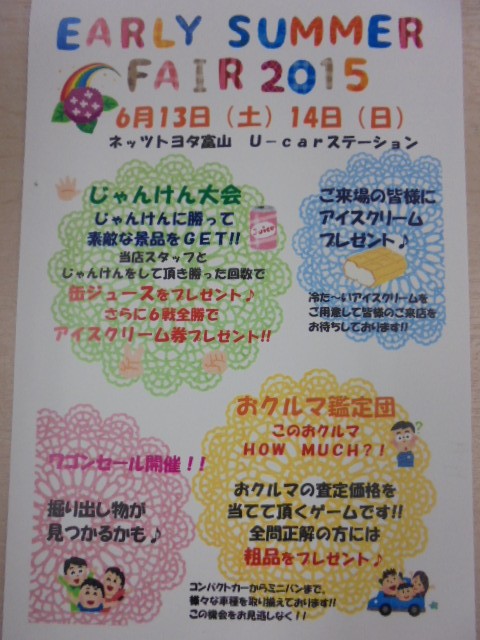 EARLY SUMMER
FAIR 2015
6月13日（土）14日（日）
ネッツトヨタ富山 U－carステーション
じゃんけん大会
じゃんけんに勝って
素敵な景品をGET!!
当店スタッフと
じゃんけんをして頂き勝った回数で
缶ジュースをプレゼント♪
さらに6戦全勝で
アイスクリーム券プレゼント!!
Juice
ご来場の皆様に
アイスクリーム
プレゼント♪
冷た～いアイスクリームを
ご用意して皆様のご来店を
お待ちしております!!
ワゴンセール開催！！
掘り出し物が
見つかるかも♪
おクルマ鑑定団
このおクルマ
HOW MUCH？！
おクルマの査定価格を
当てて頂くゲームです!!
全問正解の方には
粗品をプレゼント♪
コンパクトカーからミニバンまで、
様々な車種を取り揃えております!!
この機会をお見逃しなく！！